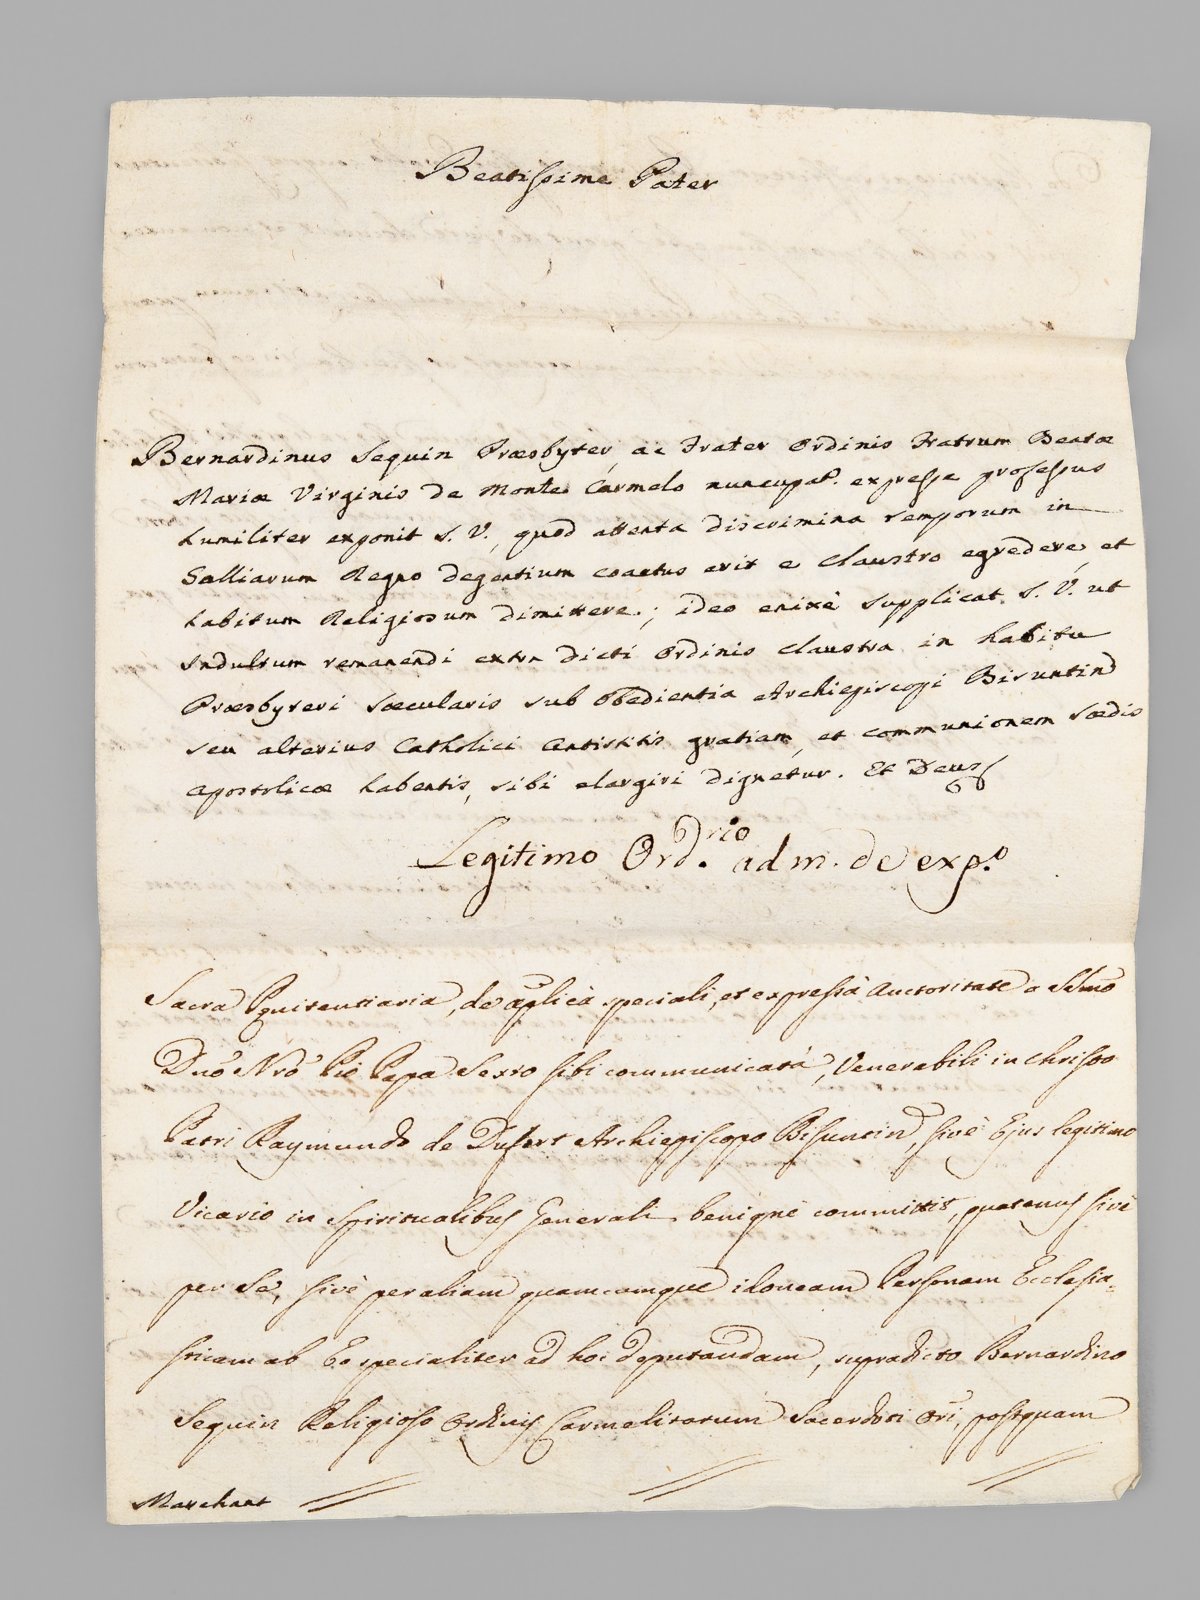 Beatissime Pater
Bernardinus Seguin Præsbyter, ac Frater Ordinis Fratrum Beatæ
Mariæ Virginis de Monte Carmelo nuncupat. expresse professus
humiliter exponit S. V., quod attenta discrimina temporum in
Galliarum Regno degentium coactus erit e claustro egredere, et
habitum Religiosum dimittere; ideo enixè supplicat S. V. ut
Indultum remanendi extra dicti Ordinis claustra in habitu
Præsbyteri sæcularis sub obedientia Archiepiscopi Bisuntin
seu alterius Catholici Antistitis gratiam, et communionem Sædis
Apostolicæ habentis, sibi elargiri dignetur. Et Deus
Legitimo Ord.rio adm. de exp.o
Sacra Pœnitentiaria, de aplicà speciali, et expressâ Auctoritate a SSmo
Dnõ Nrõ Pio Papa Sexto sibi communicatâ, Venerabili in Christo
Patri Raymundo de Dufort Archiepiscopo Bisuntin, sivè Ejus legitimo
Vicario in Spiritualibus Generali benignè committit, quatenus sivè
per Se, sivè per aliam quamcumque idoneam Personam Ecclesia-
sticam ab Eo specialiter ad hoc deputandam, supradicto Bernardino
Seguin Religioso Ordinis Carmelitarum Sacerdoti Ori, postquam
Marchant